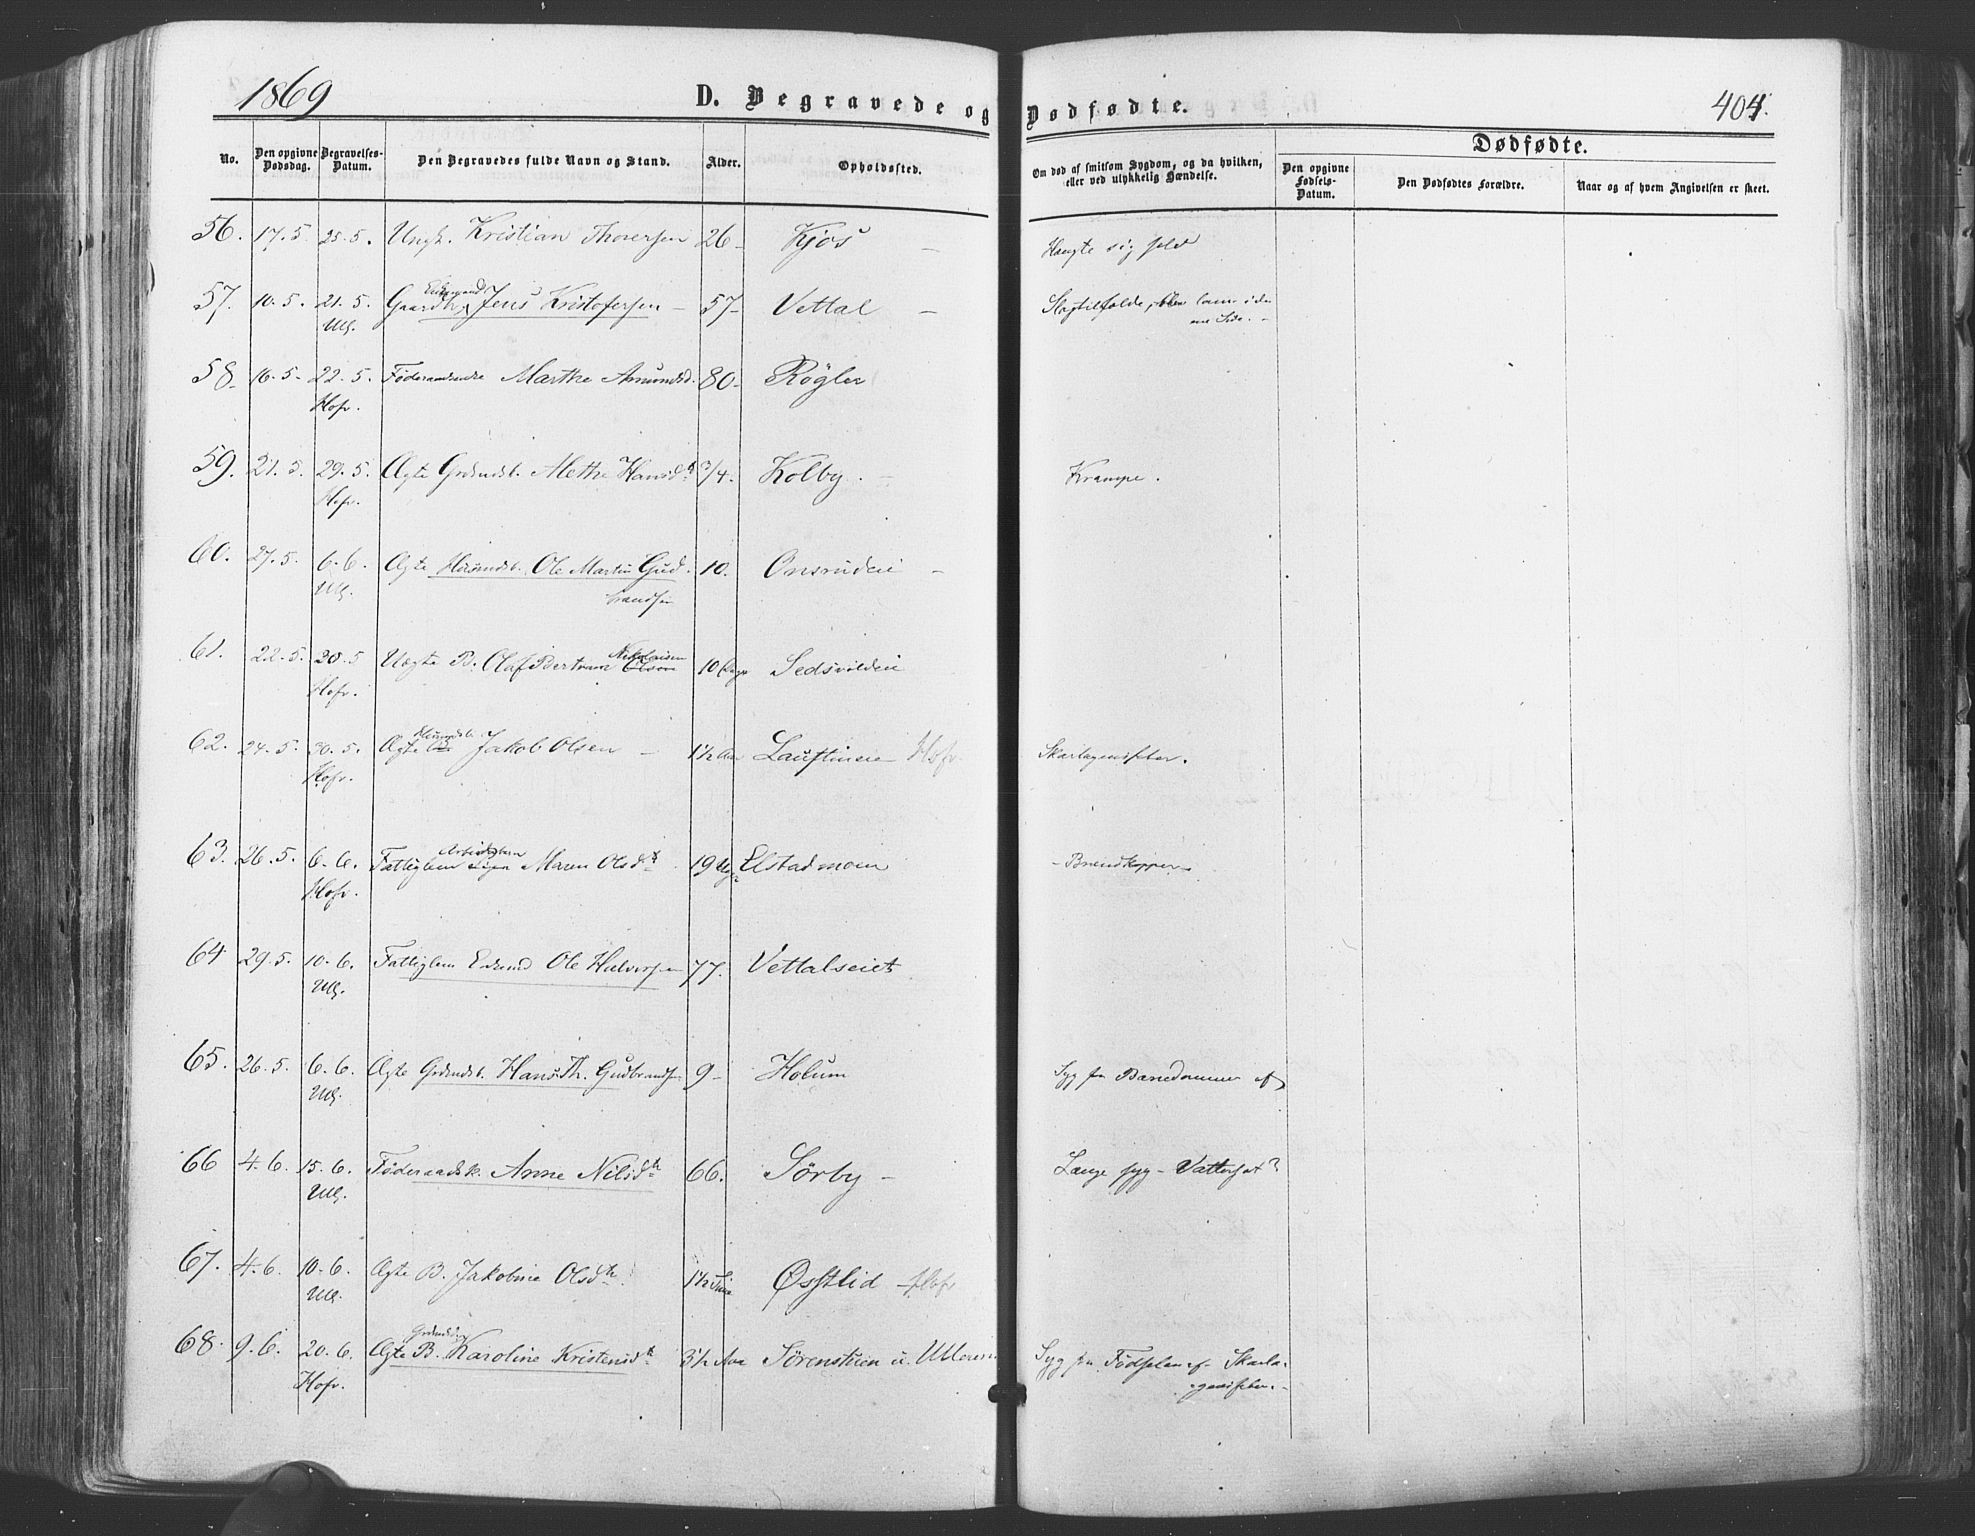 1869
D. Begravede og Dødfødte.
404.
No.
Den opgivne Dødsdag.
Begravelses-Datum.
Den Begravedes fulde Navn og Stand.
Alder.
Opholdssted.
Om død af smitsom Sygdom, og da hvilken, eller ved ulykkelig Hændelse.
Dødfødte.
Den opgivne Fødsels-Datum.
Den Dødfødtes Forældre.
Naar og af hvem Angivelsen er skeet.
56. 17.5. 25.5. Ungk. Kristian Thoresen 26 - Kjos - Hængte sig selv
Enkemand
57. 10.5. 21.5. Gaardbr. Jens Kristofersen - 57 - Vettal - Slagtilfælde, lam i den
Ull. ene Side. -
58. 16.5. 22.5. Føderaadsenke Marthe Amundsd. 80 - Røgler
Hofv.
59. 21.5. 29.5. Ægte Grdmdsb. Methe Hansdt 3/4. Kolby. - Krampe.
Hofv.
60. 27.5. 6.6. Ægte Husmdsb. Ole Martin Gud 10. Onsrudeie -
Ull. brandsen
Nikolaisen
61. 22.5. 30.5 Uægte B. Olaf Bertram Olsen 10 Dage Sedsvoldeie
Hofv.
Husmdsb.
62. 24.5. 30.5. Ægte Jakob Olsen - 1½ Aar Hofv. Skarlagensfeber.
Hofv.
63. 26.5. 6.6. Fattiglem Maren Olsdt 19 Elstadmoen - Brændkopper -
Hofv.
64 29.5. 10.6. Fattiglem Ole Halvorsen 77. Vettalseiet
Ull.
65. 26.5. 6.6. Ægte Grdmdsb. Hans Th. Gudbrandsen 9 - Holum Syg fra Barndommen af
Ull.
66 4.6. 15.6. Føderaadsk. Anne Nilsdtr 66. Sørby - Længe syg - Vattersot?
Ull.
67. 4.6. 10.6. Ægte B. Jakobine Olsdtr. 1½ Time Østlid - Hofv
Ull.
Grdmdsb.
68. 9.6. 20.6. Ægte B. Karoline Kristensdt 3½ Aar Sørenstuen u. Ulleren Syg fra Fødselen af - Skarla-
Hofv. gensfeber. -